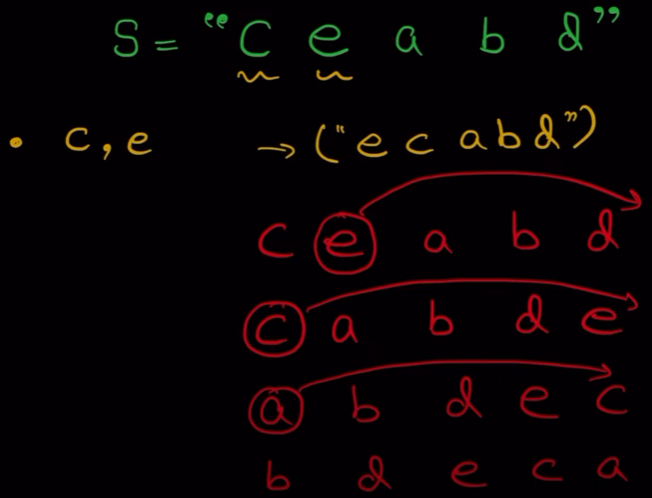 S = "C e a b d"
• c, e → ("e c a b d")
c e a b d
c a b d e
a b d e c
b d e c a